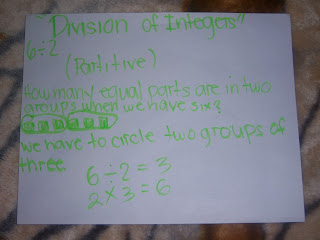 "Division of Integers"
6÷2
(Partitive)
How many equal parts are in two
groups when we have six?
we have to circle two groups of
three
6÷2=3
2×3=6